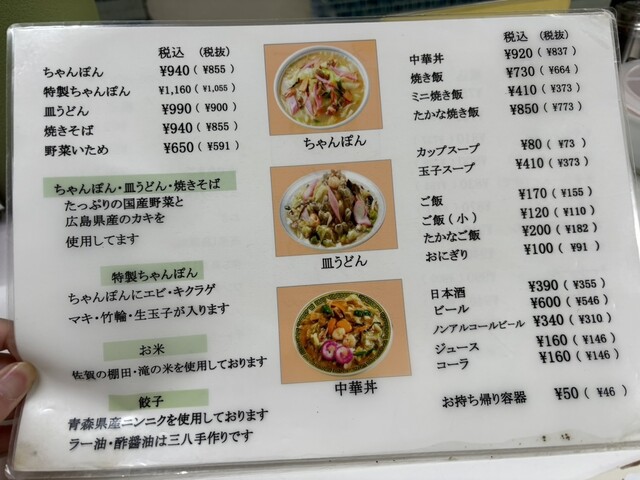 税込 (税抜)
ちゃんぽん ¥940 ( ¥855 )
特製ちゃんぽん ¥1,160 ( ¥1,055 )
皿うどん ¥990 ( ¥900 )
焼きそば ¥940 ( ¥855 )
野菜いため ¥650 ( ¥591 )
ちゃんぽん・皿うどん・焼きそば
たっぷりの国産野菜と
広島県産のカキを
使用してます
特製ちゃんぽん
ちゃんぽんにエビ・キクラゲ
マキ・竹輪・生玉子が入ります
お米
佐賀の棚田・滝の米を使用しております
餃子
青森県産ニンニクを使用しております
ラー油・酢醤油は三八手作りです
ちゃんぽん
皿うどん
中華丼
税込 (税抜)
中華丼 ¥920 ( ¥837 )
焼き飯 ¥730 ( ¥664 )
ミニ焼き飯 ¥410 ( ¥373 )
たかな焼き飯 ¥850 ( ¥773 )
カップスープ ¥80 ( ¥73 )
玉子スープ ¥410 ( ¥373 )
ご飯 ¥170 ( ¥155 )
ご飯(小) ¥120 ( ¥110 )
たかなご飯 ¥200 ( ¥182 )
おにぎり ¥100 ( ¥91 )
日本酒 ¥390 ( ¥355 )
ビール ¥600 ( ¥546 )
ノンアルコールビール ¥340 ( ¥310 )
ジュース ¥160 ( ¥146 )
コーラ ¥160 ( ¥146 )
お持ち帰り容器 ¥50 ( ¥46 )